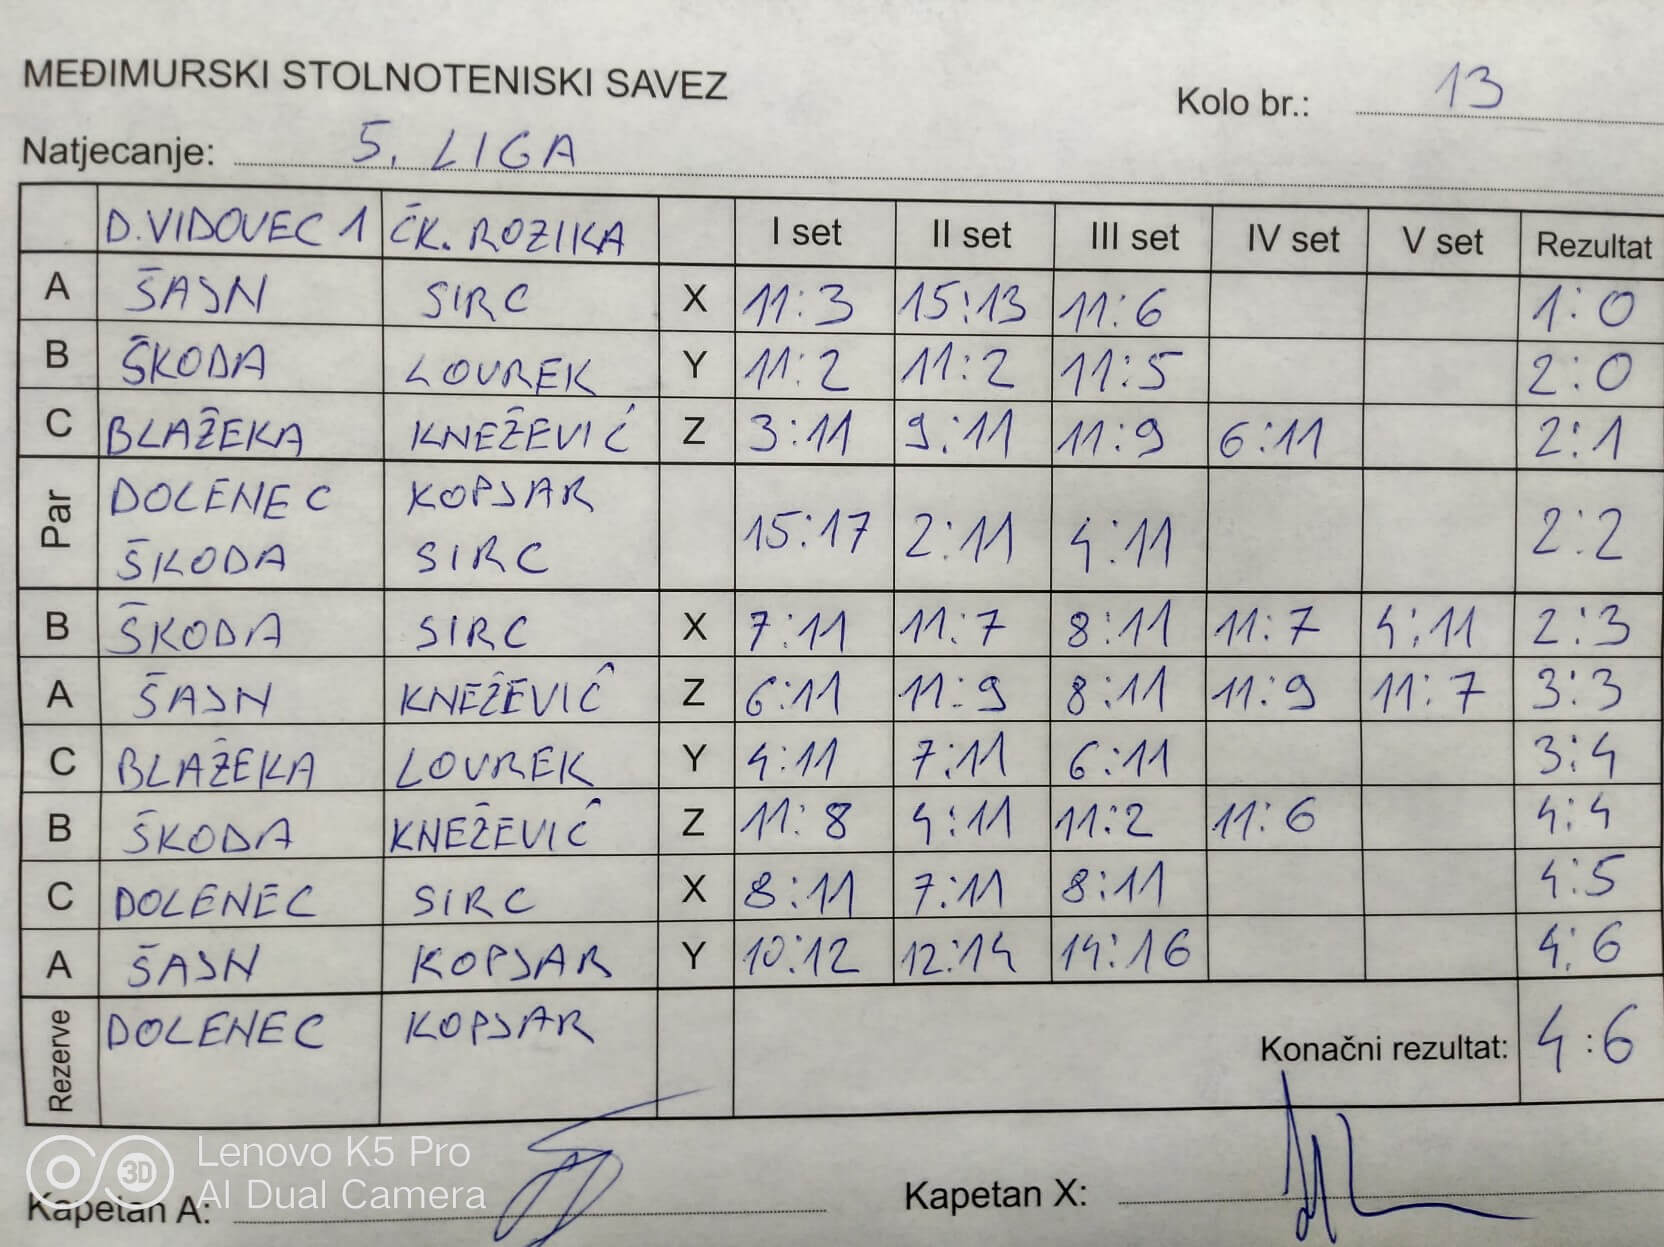 MEĐIMURSKI STOLNOTENISKI SAVEZ
Kolo br.: 13
Natjecanje: 5. LIGA
D. VIDOVEC 1 ČK. ROZIKA I set II set III set IV set V set Rezultat
A ŠAJN SIRC X 11:3 15:13 11:6 1:0
B ŠKODA LOVREK Y 11:2 11:2 11:5 2:0
C BLAŽEKA KNEŽEVIĆ Z 3:11 9:11 11:9 6:11 2:1
Par DOLENEC KOPJAR 15:17 2:11 4:11 2:2
ŠKODA SIRC
B ŠKODA SIRC X 7:11 11:7 8:11 11:7 4:11 2:3
A ŠAJN KNEŽEVIĆ Z 6:11 11:9 8:11 11:9 11:7 3:3
C BLAŽEKA LOVREK Y 4:11 7:11 6:11 3:4
B ŠKODA KNEŽEVIĆ Z 11:8 4:11 11:2 11:6 4:4
C DOLENEC SIRC X 8:11 7:11 8:11 4:5
A ŠAJN KOPJAR Y 10:12 12:14 14:16 4:6
Rezerve DOLENEC KOPJAR
Konačni rezultat: 4:6
Kapetan A:
Kapetan X:
3D
Lenovo K5 Pro
AI Dual Camera